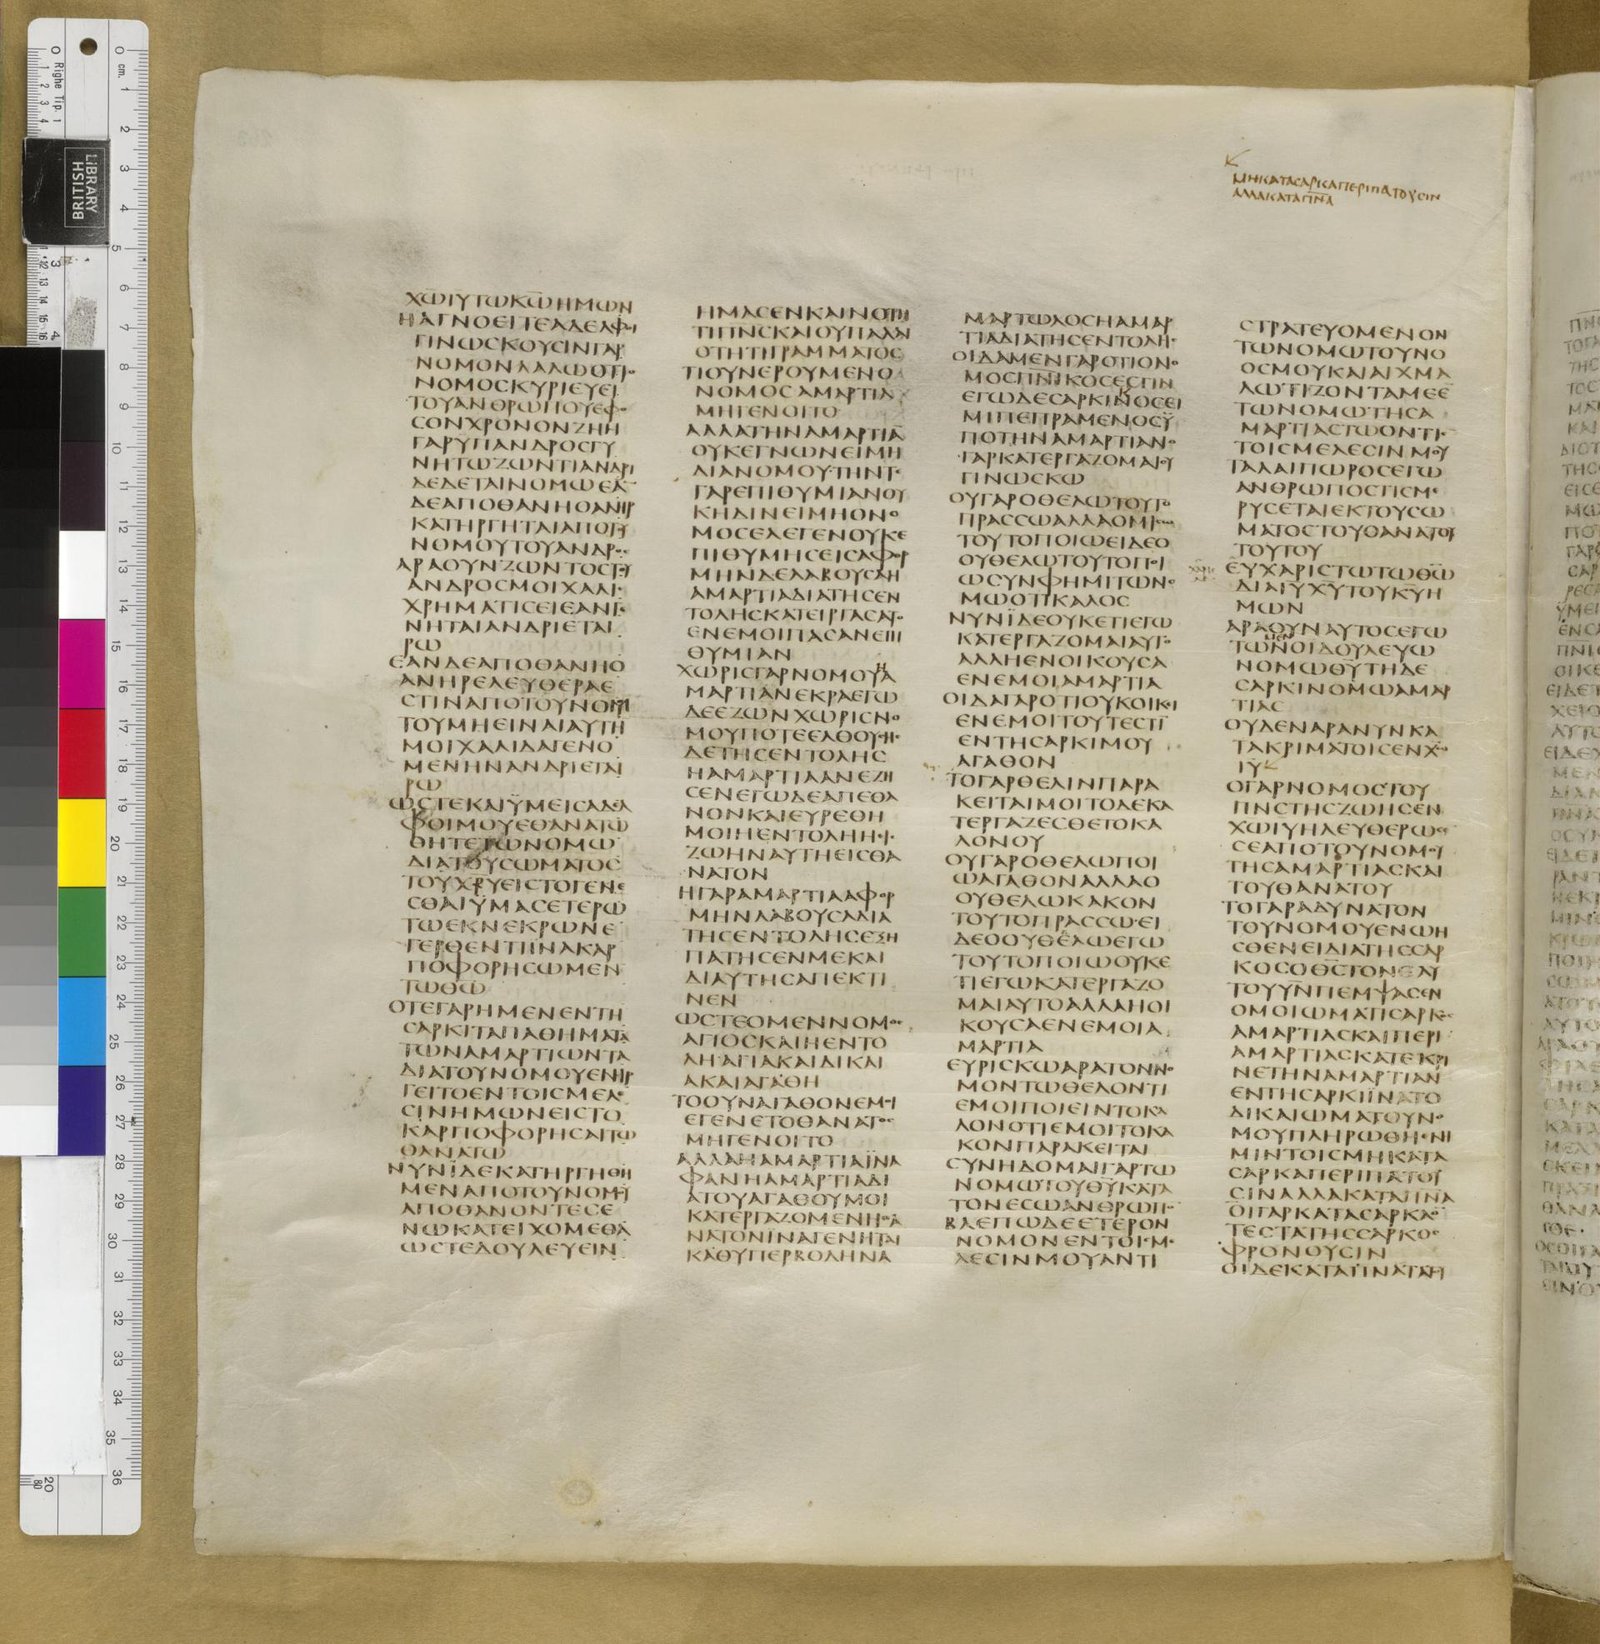 ΜΗΚΑΤΑϹΑΡΚΑΠΕΡΙΠΑΤΟΥϹΙΝ
ΑΛΛΑΚΑΤΑΠΝΑ
ΧΩΙΥΤΩΚΩΗΜΩΝ
ΗΑΓΝΟΕΙΤΕΑΔΕΛΦΟΙ
ΓΙΝΩϹΚΟΥϹΙΝΓΑΡ
ΝΟΜΟΝΛΑΛΩΟΤΙΟ
ΝΟΜΟϹΚΥΡΙΕΥΕΙ
ΤΟΥΑΝΘΡΩΠΟΥΕΦΟ
ϹΟΝΧΡΟΝΟΝΖΗΗ
ΓΑΡΥΠΑΝΔΡΟϹΓΥ
ΝΗΤΩΖΩΝΤΙΑΝΔΡΙ
ΔΕΔΕΤΑΙΝΟΜΩΕΑ
ΔΕΑΠΟΘΑΝΗΟΑΝΗΡ
ΚΑΤΗΡΓΗΤΑΙΑΠΟΤΟΥ
ΝΟΜΟΥΤΟΥΑΝΔΡΟϹ
ΑΡΑΟΥΝΖΩΝΤΟϹΤΟΥ
ΑΝΔΡΟϹΜΟΙΧΑΛΙϹ
ΧΡΗΜΑΤΙϹΕΙΕΑΝΓΕ
ΝΗΤΑΙΑΝΔΡΙΕΤΑΙ
ΡΩ
ΕΑΝΔΕΑΠΟΘΑΝΗΟ
ΑΝΗΡΕΛΕΥΘΕΡΑΕ
ϹΤΙΝΑΠΟΤΟΥΝΟΜΟΥ
ΤΟΥΜΗΕΙΝΑΙΑΥΤΗ
ΜΟΙΧΑΛΙΔΑΓΕΝΟ
ΜΕΝΗΝΑΝΔΡΙΕΤΑΙ
ΡΩ
ΩϹΤΕΚΑΙΫΜΕΙϹΑΔΕΛ
ΦΟΙΜΟΥΕΘΑΝΑΤΩ
ΘΗΤΕΤΩΝΟΜΩ
ΔΙΑΤΟΥϹΩΜΑΤΟϹ
ΤΟΥΧΡΥΕΙϹΤΟΓΕΝΕ
ϹΘΑΙΫΜΑϹΕΤΕΡΩ
ΤΩΕΚΝΕΚΡΩΝΕ
ΓΕΡΘΕΝΤΙΪΝΑΚΑΡ
ΠΟΦΟΡΗϹΩΜΕΝ
ΤΩΘΩ
ΟΤΕΓΑΡΗΜΕΝΕΝΤΗ
ϹΑΡΚΙΤΑΠΑΘΗΜΑΤΑ
ΤΩΝΑΜΑΡΤΙΩΝΤΑ
ΔΙΑΤΟΥΝΟΜΟΥΕΝΗΡ
ΓΕΙΤΟΕΝΤΟΙϹΜΕΛΕ
ϹΙΝΗΜΩΝΕΙϹΤΟ
ΚΑΡΠΟΦΟΡΗϹΑΙΤΩ
ΘΑΝΑΤΩ
ΝΥΝΪΔΕΚΑΤΗΡΓΗΘΗ
ΜΕΝΑΠΟΤΟΥΝΟΜΟΥ
ΑΠΟΘΑΝΟΝΤΕϹΕ
ΝΩΚΑΤΕΙΧΟΜΕΘΑ
ΩϹΤΕΔΟΥΛΕΥΕΙΝ
ΗΜΑϹΕΝΚΑΙΝΟΤΗ
ΤΙΠΝϹΚΑΙΟΥΠΑΛΑΙ
ΟΤΗΤΙΓΡΑΜΜΑΤΟϹ
ΤΙΟΥΝΕΡΟΥΜΕΝΟ
ΝΟΜΟϹΑΜΑΡΤΙΑ
ΜΗΓΕΝΟΙΤΟ
ΑΛΛΑΤΗΝΑΜΑΡΤΙΑ
ΟΥΚΕΓΝΩΝΕΙΜΗ
ΔΙΑΝΟΜΟΥΤΗΝΤΕ
ΓΑΡΕΠΙΘΥΜΙΑΝΟΥ
ΚΗΔΙΝΕΙΜΗΟΝΟ
ΜΟϹΕΛΕΓΕΝΟΥΚΕ
ΠΙΘΥΜΗϹΕΙϹΑΦΟΡ
ΜΗΝΔΕΛΑΒΟΥϹΑΗ
ΑΜΑΡΤΙΑΔΙΑΤΗϹΕΝ
ΤΟΛΗϹΚΑΤΕΙΡΓΑϹΑΤΟ
ΕΝΕΜΟΙΠΑϹΑΝΕΠΙ
ΘΥΜΙΑΝ
ΧΩΡΙϹΓΑΡΝΟΜΟΥΑ
ΜΑΡΤΙΑΝΕΚΡΑΕΓΩ
ΔΕΕΖΩΝΧΩΡΙϹΝΟ
ΜΟΥΠΟΤΕΕΛΘΟΥϹΗϹ
ΔΕΤΗϹΕΝΤΟΛΗϹ
ΗΑΜΑΡΤΙΑΑΝΕΖΗ
ϹΕΝΕΓΩΔΕΑΠΕΘΑ
ΝΟΝΚΑΙΕΥΡΕΘΗ
ΜΟΙΗΕΝΤΟΛΗΗΕΙϹ
ΖΩΗΝΑΥΤΗΕΙϹΘΑ
ΝΑΤΟΝ
ΗΓΑΡΑΜΑΡΤΙΑΑΦΟΡ
ΜΗΝΛΑΒΟΥϹΑΔΙΑ
ΤΗϹΕΝΤΟΛΗϹΕΞΗ
ΠΑΤΗϹΕΝΜΕΚΑΙ
ΔΙΑΥΤΗϹΑΠΕΚΤΙ
ΝΕΝ
ΩϹΤΕΟΜΕΝΝΟΜΟϹ
ΑΓΙΟϹΚΑΙΗΕΝΤΟ
ΛΗΑΓΙΑΚΑΙΔΙΚΑΙ
ΑΚΑΙΑΓΑΘΗ
ΤΟΟΥΝΑΓΑΘΟΝΕΜΟΙ
ΕΓΕΝΕΤΟΘΑΝΑΤΟϹ
ΜΗΓΕΝΟΙΤΟ
ΑΛΛΑΗΑΜΑΡΤΙΑΪΝΑ
ΦΑΝΗΑΜΑΡΤΙΑΔΙ
ΑΤΟΥΑΓΑΘΟΥΜΟΙ
ΚΑΤΕΡΓΑΖΟΜΕΝΗΘΑ
ΝΑΤΟΝΙΝΑΓΕΝΗΤΑΙ
ΚΑΘΥΠΕΡΒΟΛΗΝΑ
ΜΑΡΤΩΛΟϹΗΑΜΑΡ
ΤΙΑΔΙΑΤΗϹΕΝΤΟΛΗϹ
ΟΙΔΑΜΕΝΓΑΡΟΤΙΟΝΟ
ΜΟϹΠΝΙΚΟϹΕϹΤΙΝ
ΕΓΩΔΕϹΑΡΚΙΝΟϹΕΙ
ΜΙΠΕΠΡΑΜΕΝΟϹΫ
ΠΟΤΗΝΑΜΑΡΤΙΑΝΟ
ΓΑΡΚΑΤΕΡΓΑΖΟΜΑΙΟΥ
ΓΙΝΩϹΚΩ
ΟΥΓΑΡΟΘΕΛΩΤΟΥΤΟ
ΠΡΑϹϹΩΑΛΛΑΟΜΙϹΩ
ΤΟΥΤΟΠΟΙΩΕΙΔΕΟ
ΟΥΘΕΛΩΤΟΥΤΟΠΟΙ
ΩϹΥΝΦΗΜΙΤΩΝΟ
ΜΩΟΤΙΚΑΛΟϹ
ΝΥΝΪΔΕΟΥΚΕΤΙΕΓΩ
ΚΑΤΕΡΓΑΖΟΜΑΙΑΥΤΟ
ΑΛΛΗΕΝΟΙΚΟΥϹΑ
ΕΝΕΜΟΙΑΜΑΡΤΙΑ
ΟΙΔΑΓΑΡΟΤΙΟΥΚΟΙΚΕΙ
ΕΝΕΜΟΙΤΟΥΤΕϹΤΙ
ΕΝΤΗϹΑΡΚΙΜΟΥ
ΑΓΑΘΟΝ
ΤΟΓΑΡΘΕΛΙΝΠΑΡΑ
ΚΕΙΤΑΙΜΟΙΤΟΔΕΚΑ
ΤΕΡΓΑΖΕϹΘΕΤΟΚΑ
ΛΟΝΟΥ
ΟΥΓΑΡΟΘΕΛΩΠΟΙ
ΩΑΓΑΘΟΝΑΛΛΑΟ
ΟΥΘΕΛΩΚΑΚΟΝ
ΤΟΥΤΟΠΡΑϹϹΩΕΙ
ΔΕΟΟΥΘΕΛΩΕΓΩ
ΤΟΥΤΟΠΟΙΩΟΥΚΕ
ΤΙΕΓΩΚΑΤΕΡΓΑΖΟ
ΜΑΙΑΥΤΟΑΛΛΑΗΟΙ
ΚΟΥϹΑΕΝΕΜΟΙΑ
ΜΑΡΤΙΑ
ΕΥΡΙϹΚΩΑΡΑΤΟΝΝΟ
ΜΟΝΤΩΘΕΛΟΝΤΙ
ΕΜΟΙΠΟΙΕΙΝΤΟΚΑ
ΛΟΝΟΤΙΕΜΟΙΤΟΚΑ
ΚΟΝΠΑΡΑΚΕΙΤΑΙ
ϹΥΝΗΔΟΜΑΙΓΑΡΤΩ
ΝΟΜΩΤΟΥΘΥΚΑΤΑ
ΤΟΝΕϹΩΑΝΘΡΩΠΟ
ΒΛΕΠΩΔΕΕΤΕΡΟΝ
ΝΟΜΟΝΕΝΤΟΙϹΜΕ
ΛΕϹΙΝΜΟΥΑΝΤΙ
ϹΤΡΑΤΕΥΟΜΕΝΟΝ
ΤΩΝΟΜΩΤΟΥΝΟ
ΟϹΜΟΥΚΑΙΑΙΧΜΑ
ΛΩΤΙΖΟΝΤΑΜΕΕ
ΤΩΝΟΜΩΤΗϹΑ
ΜΑΡΤΙΑϹΤΩΟΝΤΙ
ΤΟΙϹΜΕΛΕϹΙΝΜΟΥ
ΤΑΛΑΙΠΩΡΟϹΕΓΩ
ΑΝΘΡΩΠΟϹΤΙϹΜΕ
ΡΥϹΕΤΑΙΕΚΤΟΥϹΩ
ΜΑΤΟϹΤΟΥΘΑΝΑΤΟΥ
ΤΟΥΤΟΥ
ΕΥΧΑΡΙϹΤΩΤΩΘΩ
ΔΙΑΙΥΧΥΤΟΥΚΥΗ
ΜΩΝ
ΑΡΑΟΥΝΑΥΤΟϹΕΓΩ
ΜΕΝ
ΤΩΝΟΙΔΟΥΛΕΥΩ
ΝΟΜΩΘΥΤΗΔΕ
ϹΑΡΚΙΝΟΜΩΑΜΑΡ
ΤΙΑϹ
ΟΥΔΕΝΑΡΑΝΥΝΚΑ
ΤΑΚΡΙΜΑΤΟΙϹΕΝΧΩ
ΙΥ
ΟΓΑΡΝΟΜΟϹΤΟΥ
ΠΝϹΤΗϹΖΩΗϹΕΝ
ΧΩΙΥΗΛΕΥΘΕΡΩϹΕ
ϹΕΑΠΟΤΟΥΝΟΜΟΥ
ΤΗϹΑΜΑΡΤΙΑϹΚΑΙ
ΤΟΥΘΑΝΑΤΟΥ
ΤΟΓΑΡΑΔΥΝΑΤΟΝ
ΤΟΥΝΟΜΟΥΕΝΩΗ
ϹΘΕΝΕΙΔΙΑΤΗϹϹΑΡ
ΚΟϹΟΘϹΤΟΝΕΑΥ
ΤΟΥΥΝΠΕΜΨΑϹΕΝ
ΟΜΟΙΩΜΑΤΙϹΑΡΚΟϹ
ΑΜΑΡΤΙΑϹΚΑΙΠΕΡΙ
ΑΜΑΡΤΙΑϹΚΑΤΕΚΡΙ
ΝΕΤΗΝΑΜΑΡΤΙΑΝ
ΕΝΤΗϹΑΡΚΙΪΝΑΤΟ
ΔΙΚΑΙΩΜΑΤΟΥΝΟ
ΜΟΥΠΛΗΡΩΘΗΕΝΗ
ΜΙΝΤΟΙϹΜΗΚΑΤΑ
ϹΑΡΚΑΠΕΡΙΠΑΤΟΥ
ϹΙΝΑΛΛΑΚΑΤΑΠΝΑ
ΟΙΓΑΡΚΑΤΑϹΑΡΚΑΟ
ΤΕϹΤΑΤΗϹϹΑΡΚΟϹ
ΦΡΟΝΟΥϹΙΝ
ΟΙΔΕΚΑΤΑΠΝΑΤΑΤΗ
LIBRARY
BRITISH